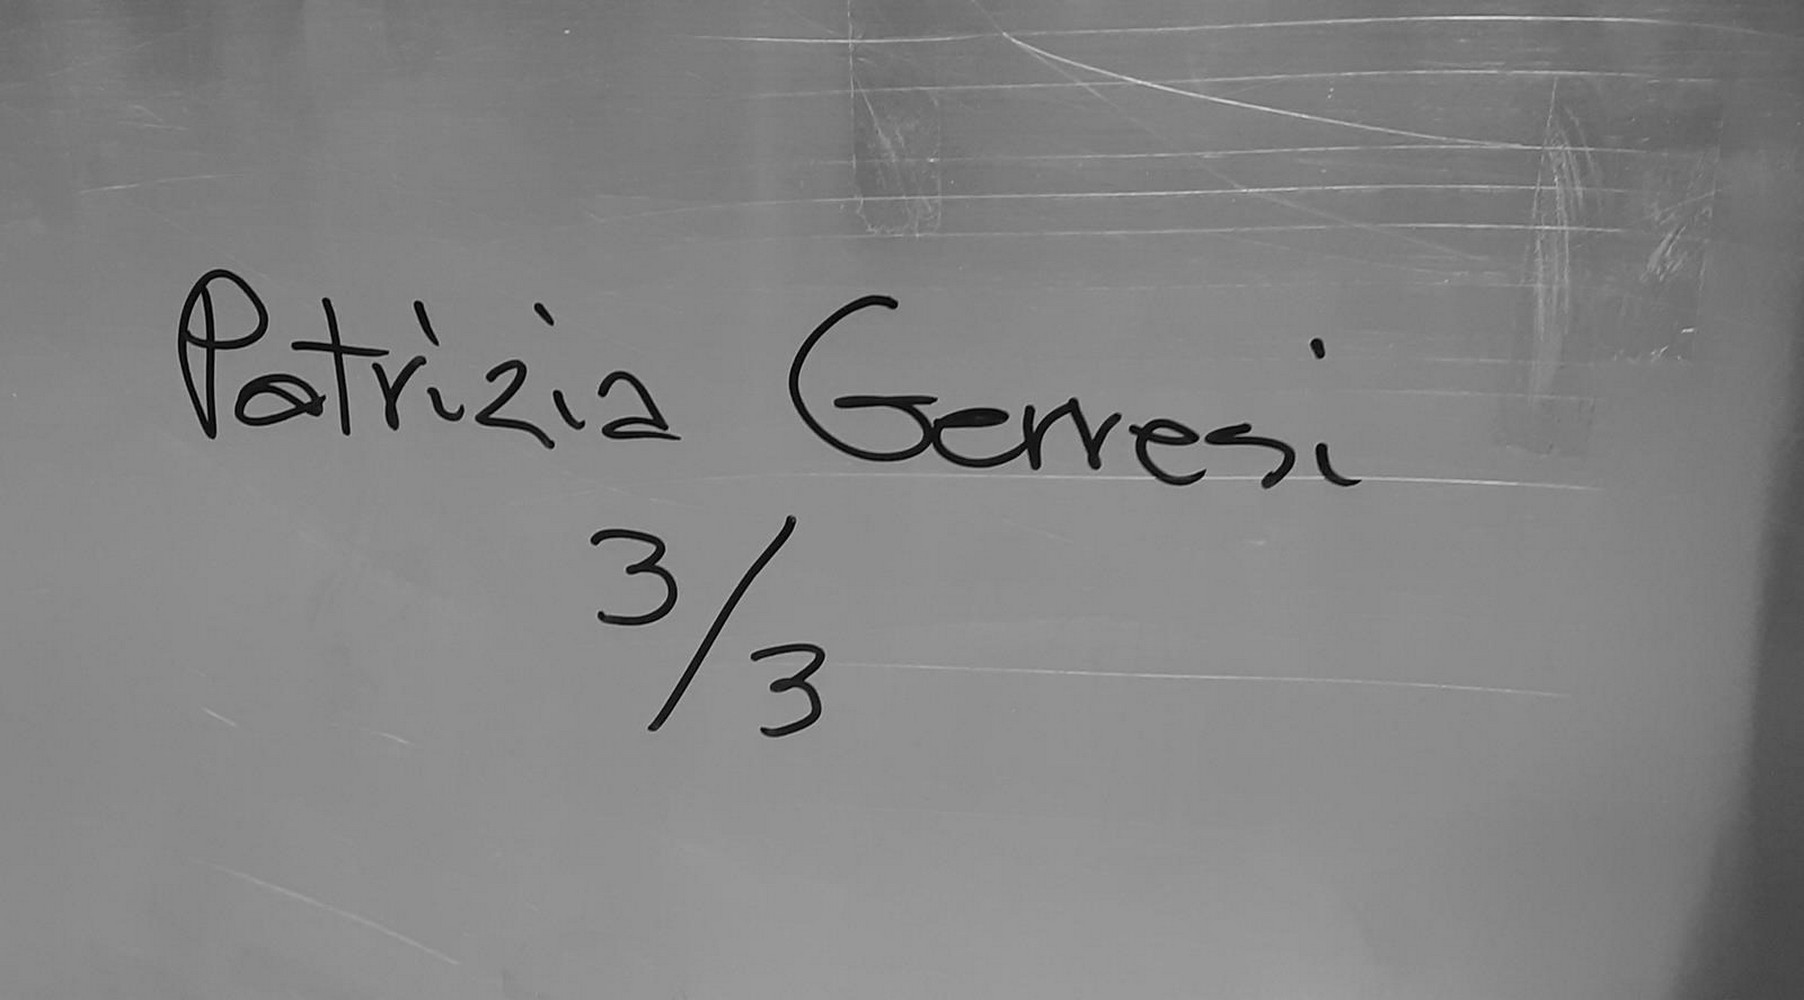 Patrizia Gerresi
3/3